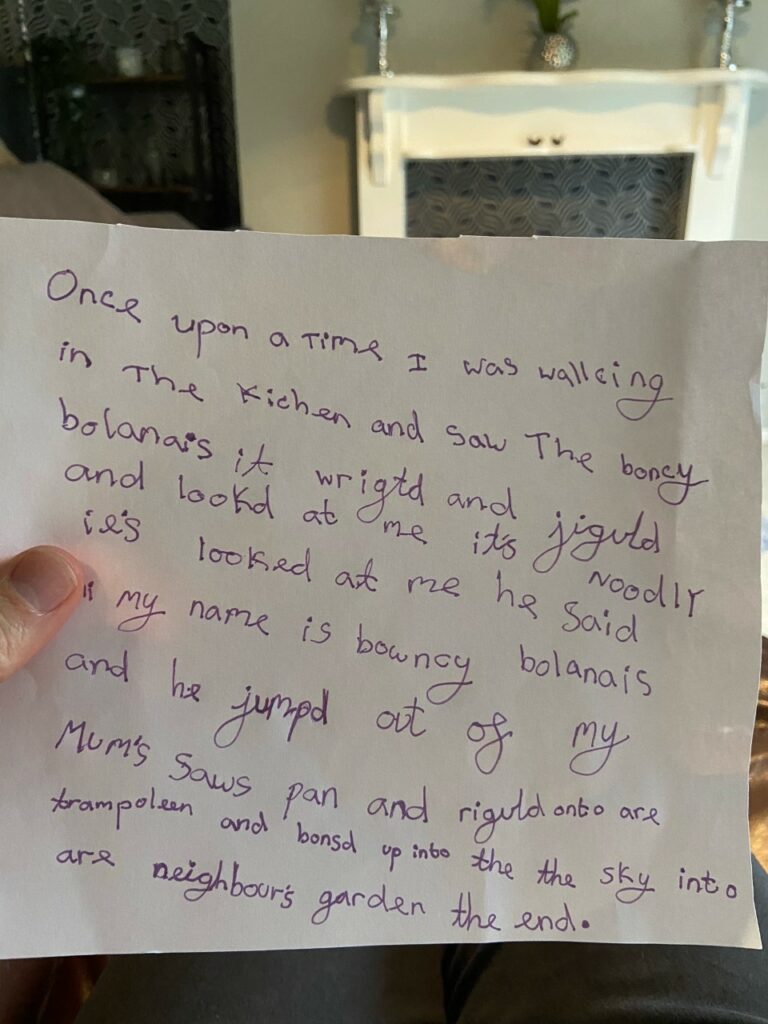 Once upon a Time I was wallcing
in The Kichen and saw The boncy
bolanais it wrigtd and jiguld
and lookd at me it's NOODlY
ie's looked at me he said
" my name is bowncy bolanais
and he jumpd out of my
Mum's Saws pan and riguld onto are
trampoleen and bonsd up into the the sky into
are neighbour's garden the end.